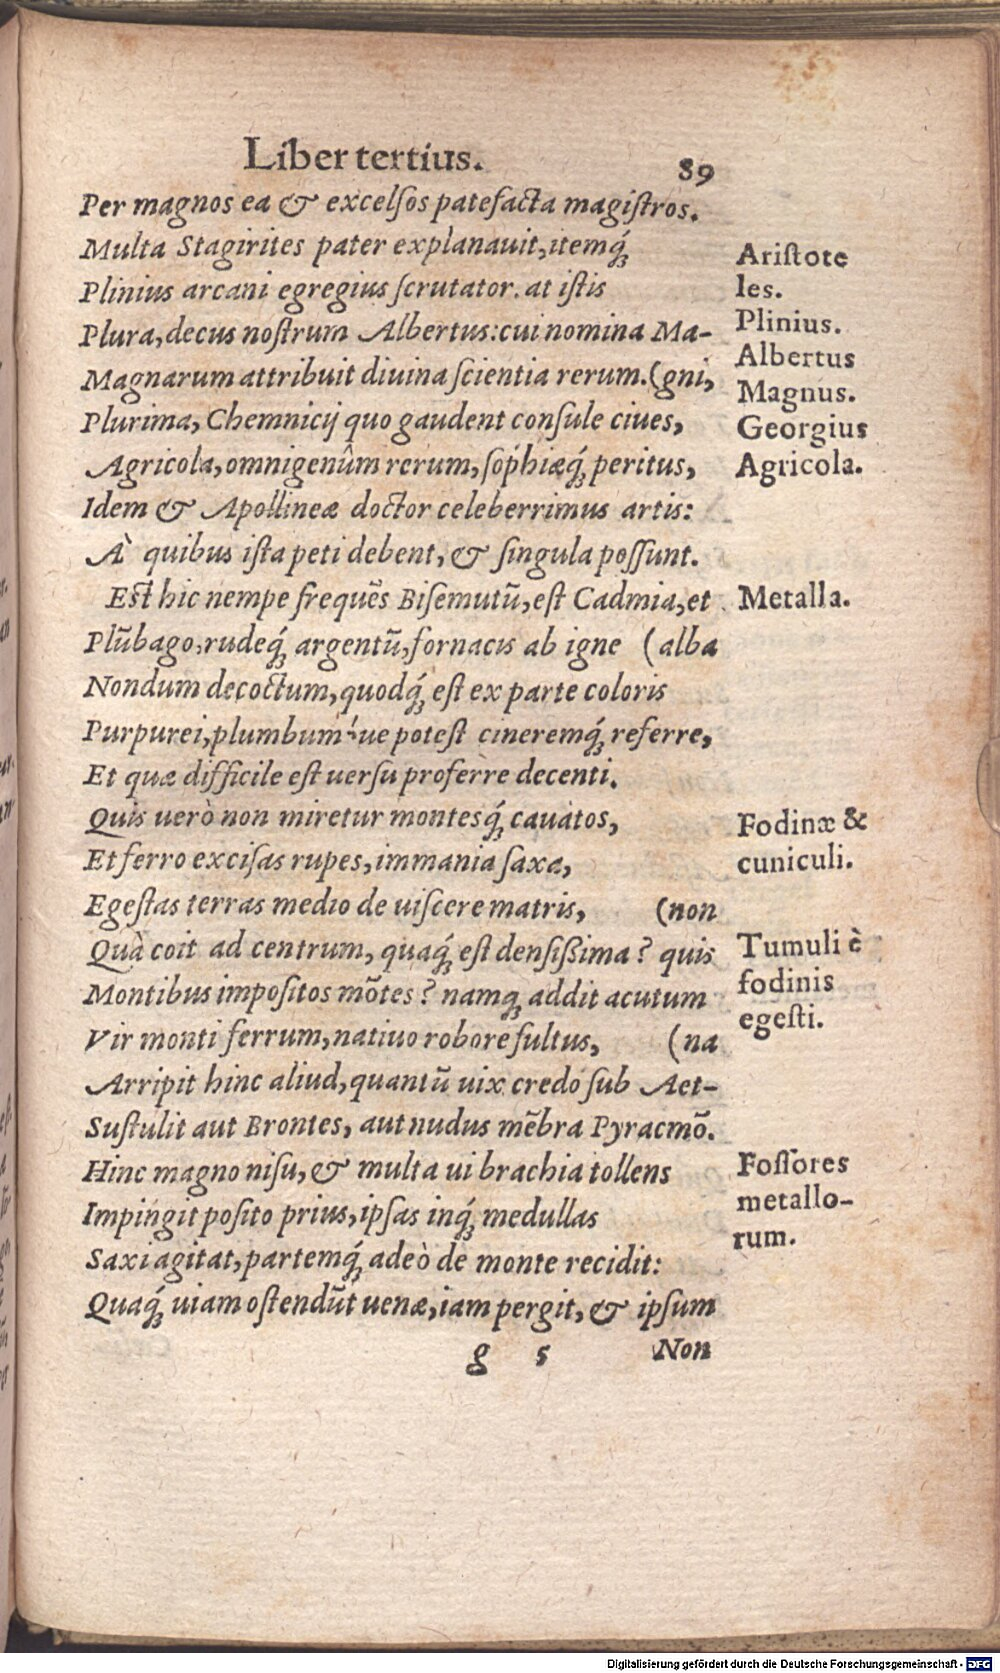 Liber tertius. 89
Per magnos ea & excelsos patefacta magistros.
Multa Stagirites pater explanauit, itemq́;
Plinius arcani egregius scrutator. at istis
Plura, decus nostrum Albertus: cui nomina Ma-
Magnarum attribuit diuina scientia rerum. (gni,
Plurima, Chemnicij quo gaudent consule ciues,
Agricola, omnigenûm rerum, sophiæq́; peritus,
Idem & Apollineæ doctor celeberrimus artis:
À quibus ista peti debent, & singula possunt.
Est hic nempe frequẽs Bisemutũ, est Cadmia, et
Plũbago, rudeq́; argentũ, fornacis ab igne (alba
Nondum decoctum, quodq́; est ex parte coloris
Purpurei, plumbum´ue potest cineremq́; referre,
Et quæ difficile est uersu proferre decenti.
Quis uerò non miretur montesq́; cauatos,
Et ferro excisas rupes, immania saxa,
Egestas terras medio de uiscere matris, (non
Quà coit ad centrum, quaq́; est densißima? quis
Montibus impositos mõtes? namq; addit acutum
Vir monti ferrum, natiuo robore fultus, (na
Arripit hinc aliud, quantũ uix credo sub Aet-
Sustulit aut Brontes, aut nudus mẽbra Pyracmõ.
Hinc magno nisu, & multa ui brachia tollens
Impingit posito prius, ipsas inq́; medullas
Saxi agitat, partemq́; adeò de monte recidit:
Quaq́; uiam ostendũt uenæ, iam pergit, & ipsum
g 5 Non
Aristote
les.
Plinius.
Albertus
Magnus.
Georgius
Agricola.
Metalla.
Fodinæ &
cuniculi.
Tumuli è
fodinis
egesti.
Fossores
metallo-
rum.
Digitalisierung gefördert durch die Deutsche Forschungsgemeinschaft - DFG